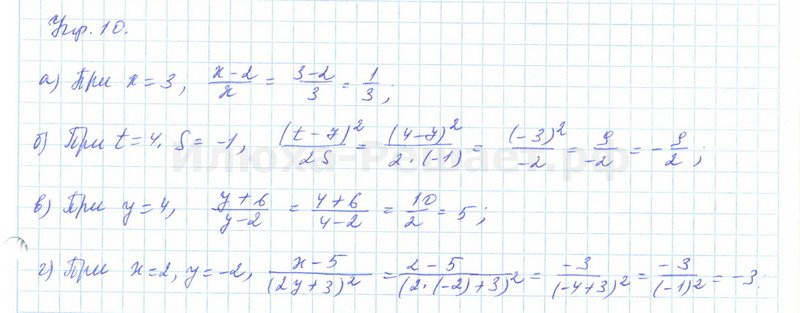 Упр. 10.
а) При x = 3, (x-2)/x = (3-2)/3 = 1/3;
б) При t = 4, S = -1, (t-7)²/2S = (4-7)²/(2·(-1)) = (-3)²/-2 = 9/-2 = -9/2;
в) При y = 4, (y+6)/(y-2) = (4+6)/(4-2) = 10/2 = 5;
г) При x = 2, y = -2, (x-5)/(2y+3)² = (2-5)/(2·(-2)+3)² = -3/(-4+3)² = -3/(-1)² = -3.